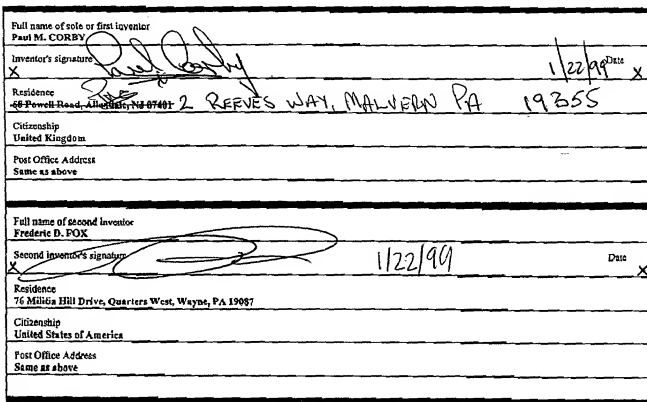 Full name of sole or first inventor
Paul M. CORBY
Inventor's signature Paul Corby 1/22/99 Date
X X
Residence
68 Powell Road, Allendale, NJ 07401 2 REEVES WAY, MALVERN PA 19355
Citizenship
United Kingdom
Post Office Address
Same as above
Full name of second inventor
Frederic D. FOX
Second inventor's signature 1/22/99 Date
X X
Residence
76 Militia Hill Drive, Quarters West, Wayne, PA 19087
Citizenship
United States of America
Post Office Address
Same as above